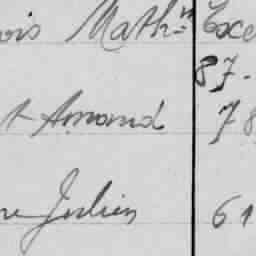 ois Mathn Exce
87-
t Amand 78
re Julien 61